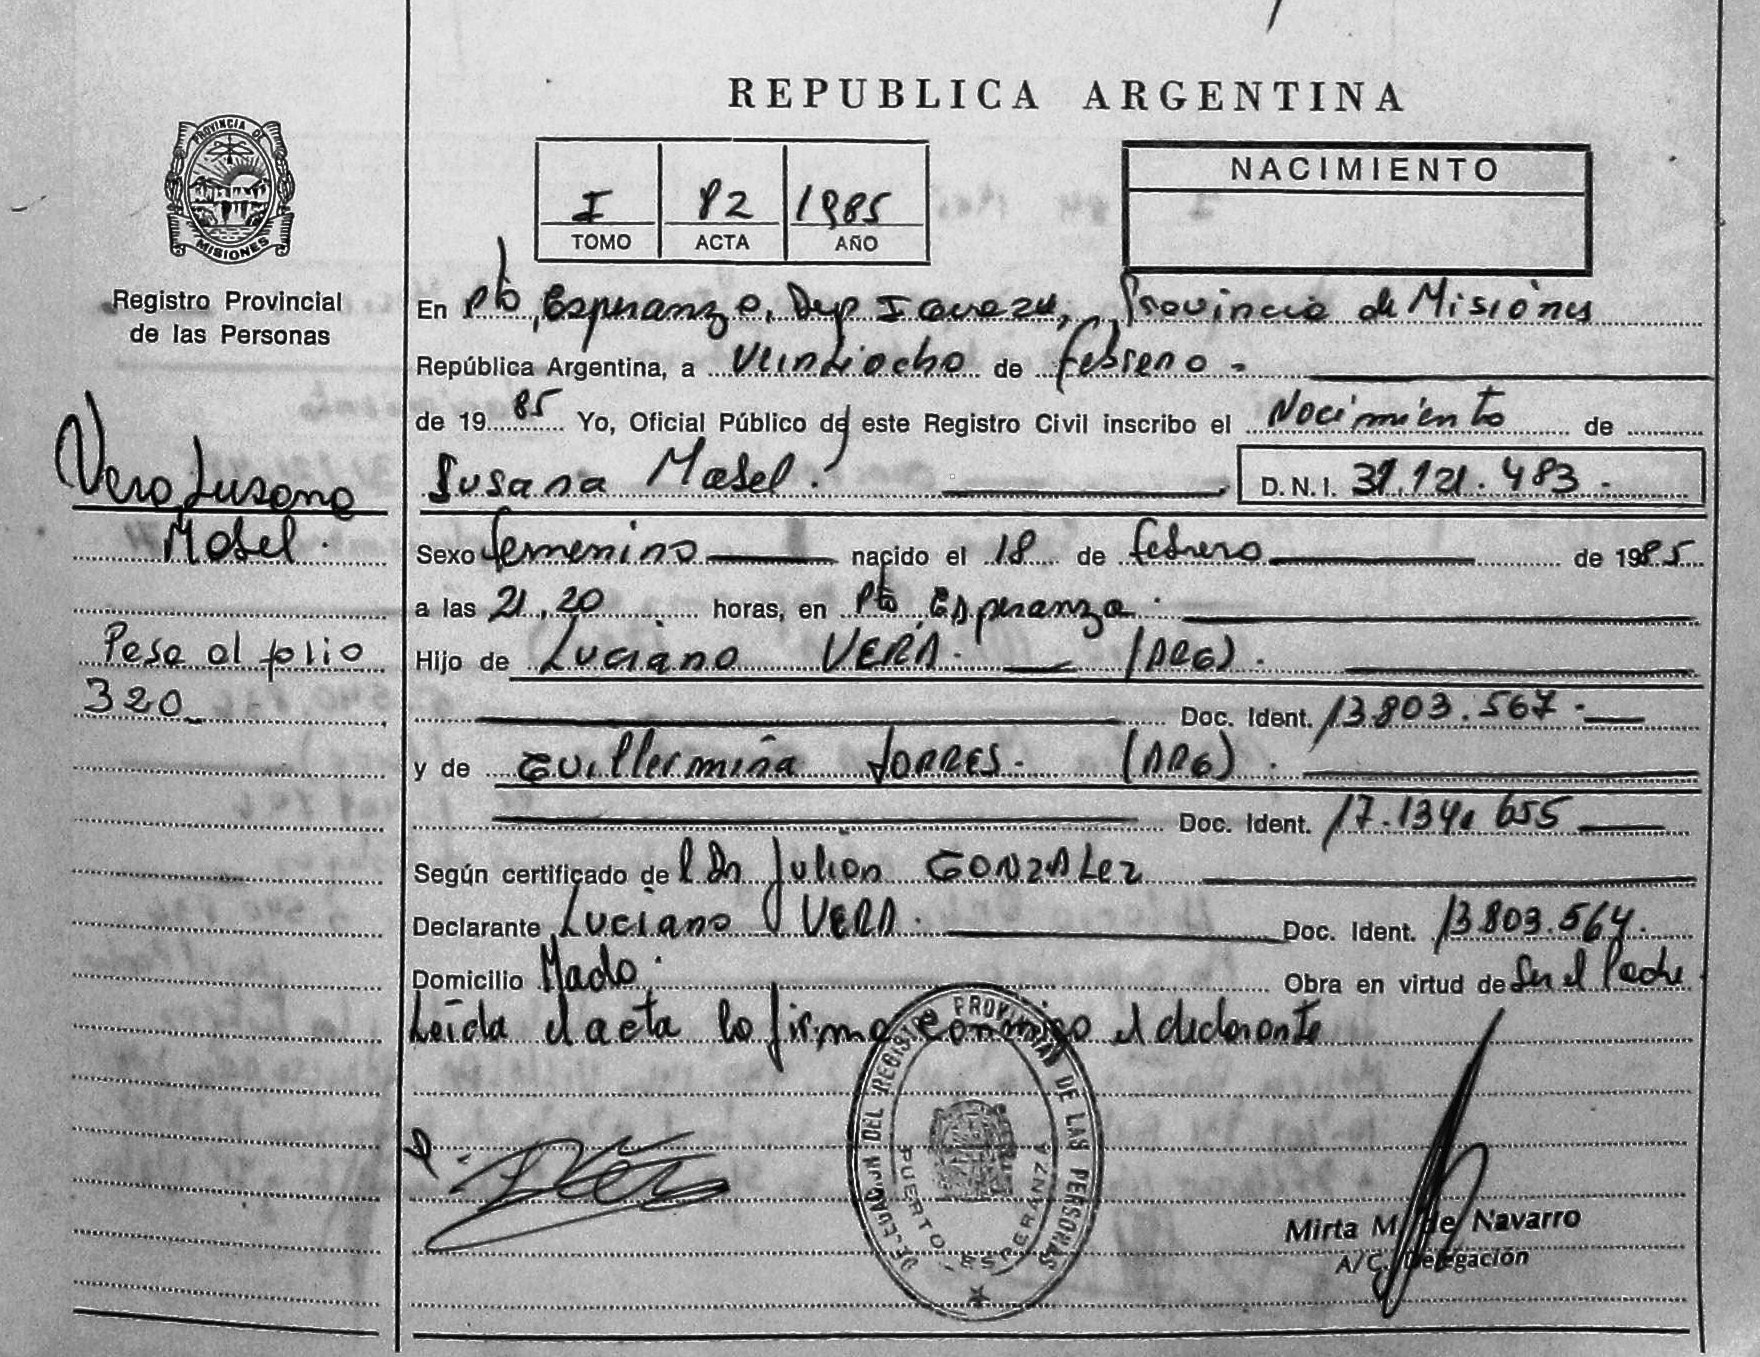 REPUBLICA ARGENTINA
PROVINCIA DE
MISIONES
Registro Provincial
de las Personas
I 82 1985
TOMO ACTA AÑO
NACIMIENTO
En Pto. Esperanza, Dep Iguazu, Provincia de Misiones
República Argentina, a Veintiocho de febrero -
de 19 85 Yo, Oficial Público de este Registro Civil inscribo el Nacimiento de
Susana Mabel. D.N.I. 31.121.483.
Sexo femenino nacido el 18 de febrero de 1985
a las 21,20 horas, en Pto Esperanza.
Hijo de Luciano VERA. (ARG).
Doc. Ident. 13.803.567.
y de Guillermina TORRES. (ARG).
Doc. Ident. 17.134.655
Según certificado de l Dr Julian GONZALez
Declarante Luciano VERA. Doc. Ident. 13.803.564.
Domicilio Mado. Obra en virtud de Ser el Padre.
Leída el acta la firma conmigo el declarante
Vera, Susana
Mabel.
Pasa al folio
320
DEL REGISTRO PROVINCIAL DE LAS PERSONAS
PUERTO ESPERANZA
Mirta M. de Navarro
A/C. Delegación